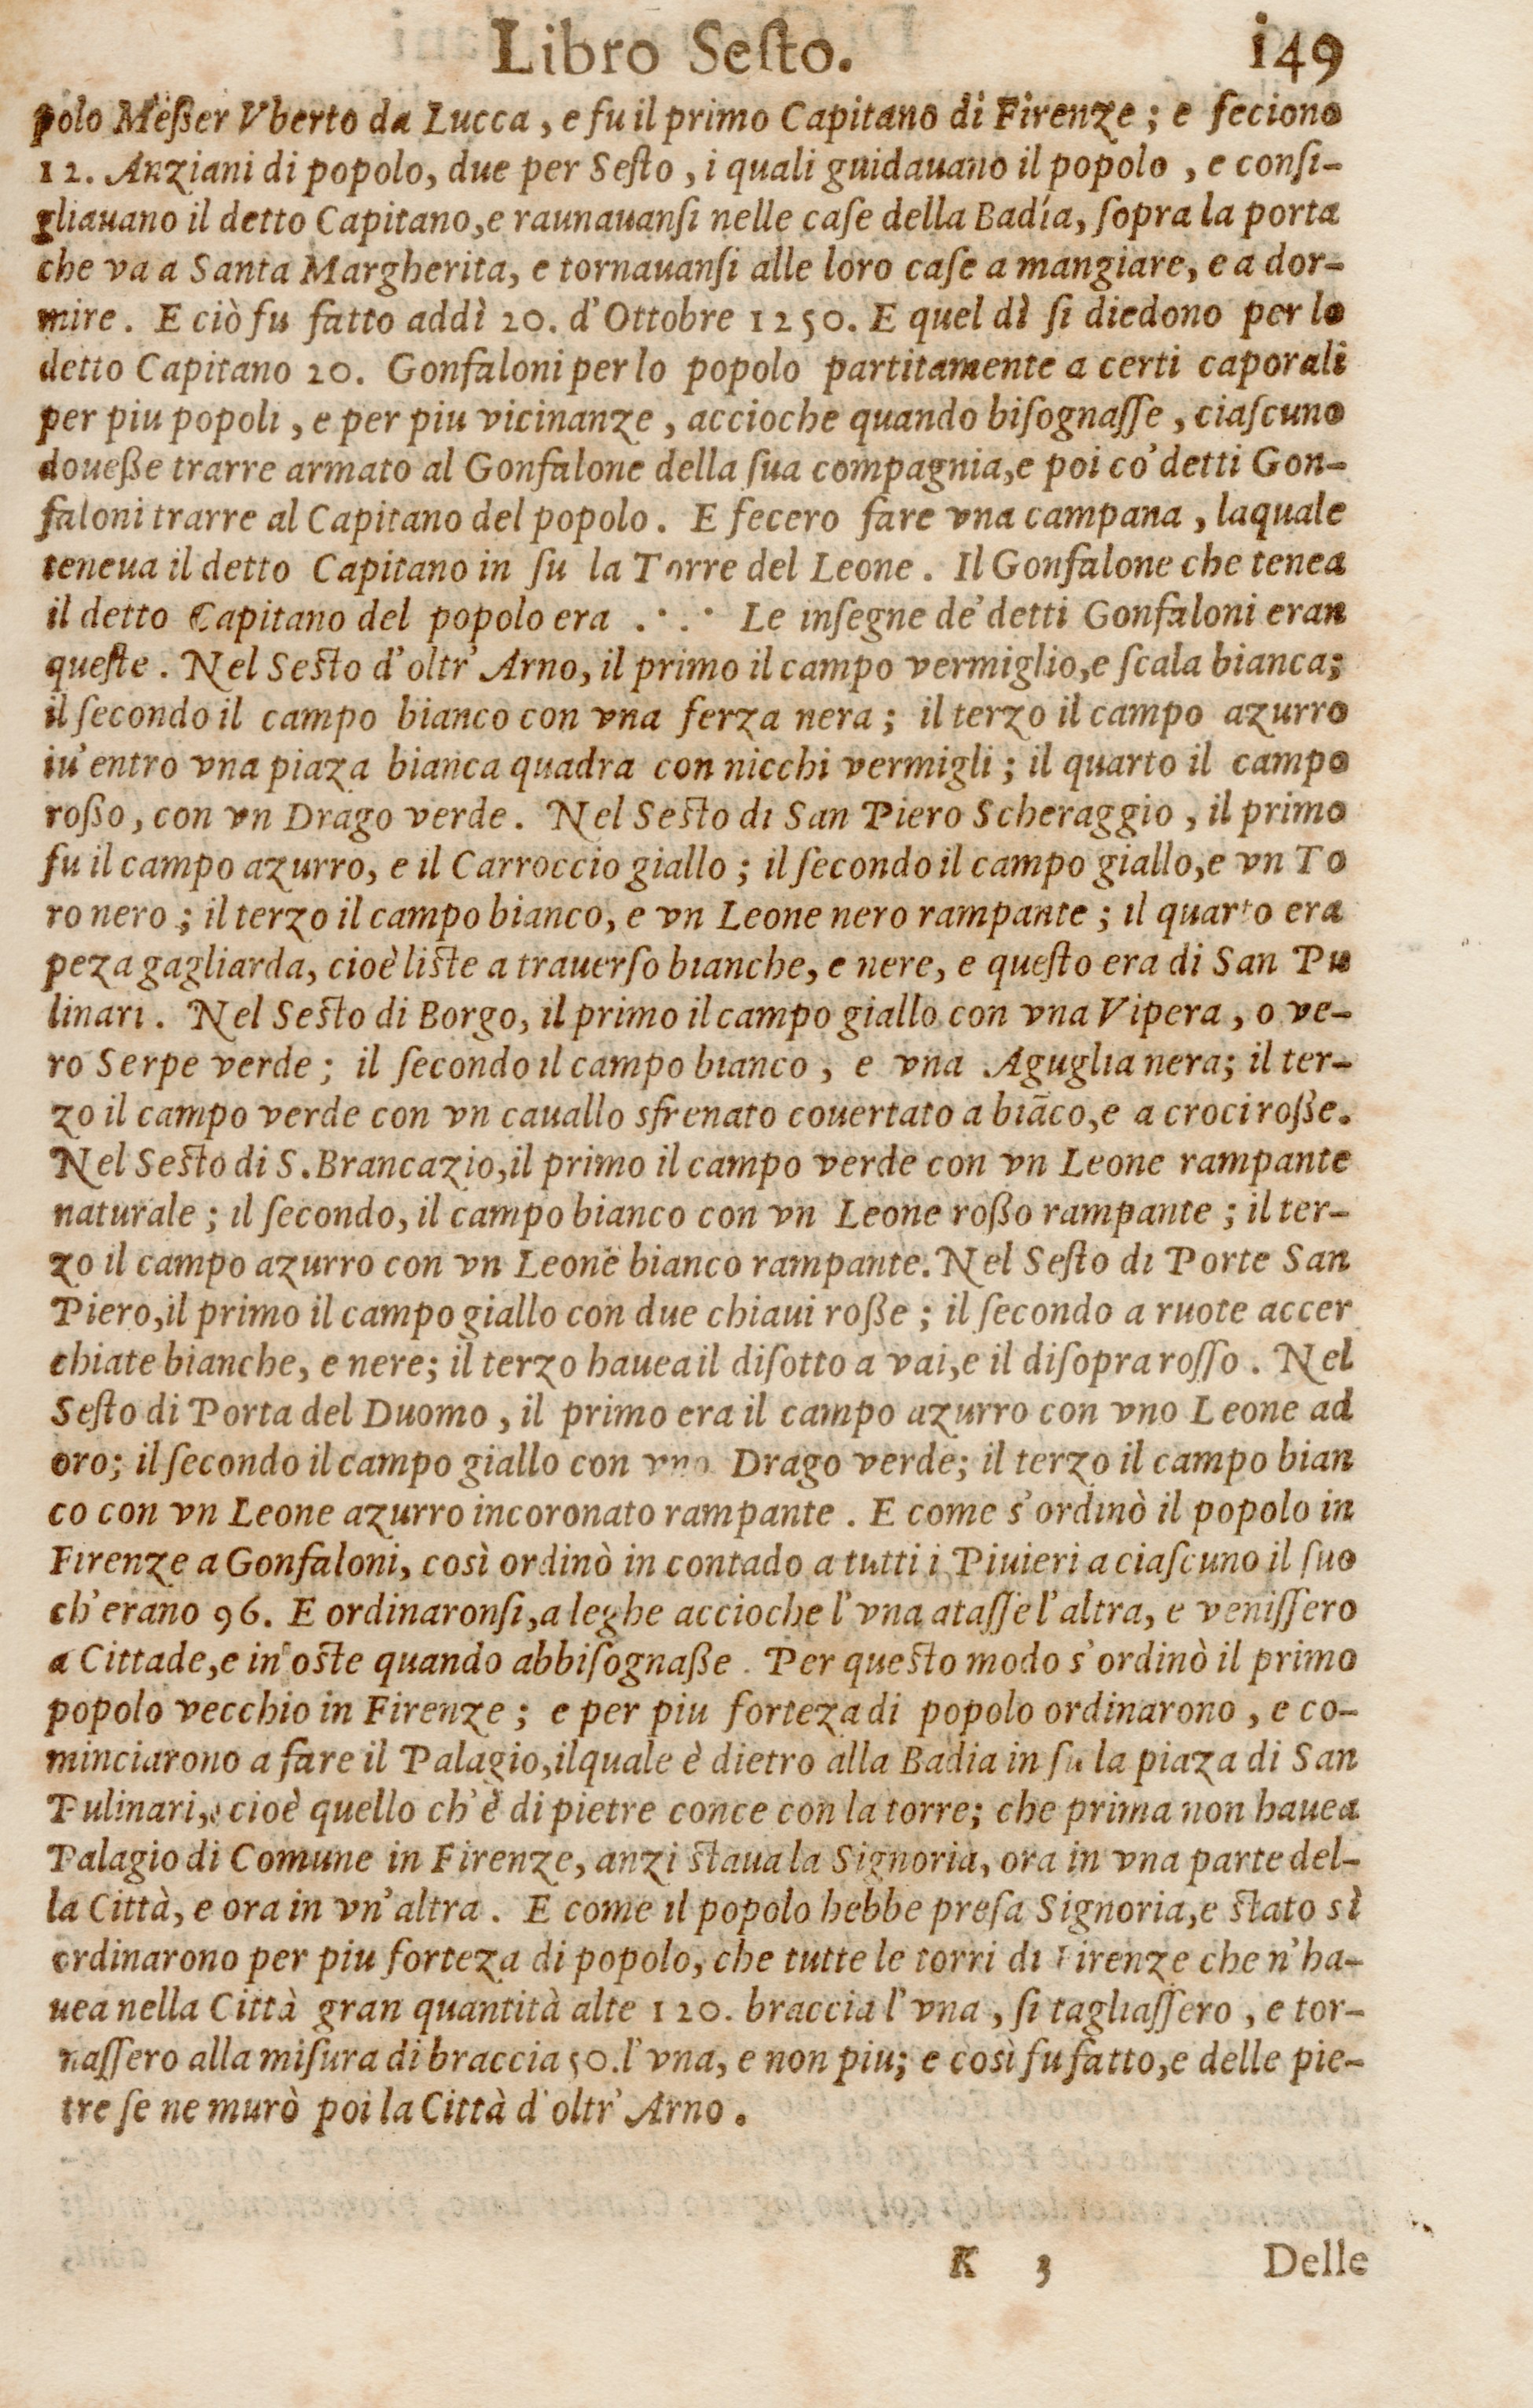 Libro Seſto. 149
polo Meßer Vberto da Lucca, e fu il primo Capitano di Firenze; e feciono
12. Anziani di popolo, due per Seſto, i quali guidauano il popolo, e conſi-
gliauano il detto Capitano, e raunauanſi nelle caſe della Badía, ſopra la porta
che va a Santa Margherita, e tornauanſi alle loro caſe a mangiare, e a dor-
mire. E ciò fu fatto addì 20. d'Ottobre 1250. E quel dì ſi diedono per lo
detto Capitano 20. Gonfaloni per lo popolo partitamente a certi caporali
per piu popoli, e per piu vicinanze, accioche quando biſognaſſe, ciaſcuno
doueße trarre armato al Gonfalone della ſua compagnia, e poi co' detti Gon-
faloni trarre al Capitano del popolo. E fecero fare vna campana, laquale
teneua il detto Capitano in ſu la Torre del Leone. Il Gonfalone che tenea
il detto Capitano del popolo era .·.· Le inſegne de' detti Gonfaloni eran
queſte. Nel Seſto d'oltr' Arno, il primo il campo vermiglio, e ſcala bianca;
il ſecondo il campo bianco con vna ferza nera; il terzo il campo azurro
iu' entro vna piaza bianca quadra con nicchi vermigli; il quarto il campo
roßo, con vn Drago verde. Nel Seſto di San Piero Scheraggio, il primo
fu il campo azurro, e il Carroccio giallo; il ſecondo il campo giallo, e vn To
ro nero; il terzo il campo bianco, e vn Leone nero rampante; il quarto era
peza gagliarda, cioè liſte a trauerſo bianche, e nere, e queſto era di San Pu
linari. Nel Seſto di Borgo, il primo il campo giallo con vna Vipera, o ve-
ro Serpe verde; il ſecondo il campo bianco, e vna Aguglia nera; il ter-
zo il campo verde con vn cauallo sfrenato couertato a biāco, e a croci roße.
Nel Seſto di S. Brancazio, il primo il campo verde con vn Leone rampante
naturale; il ſecondo, il campo bianco con vn Leone roßo rampante; il ter-
zo il campo azurro con vn Leone bianco rampante. Nel Seſto di Porte San
Piero, il primo il campo giallo con due chiaui roße; il ſecondo a ruote accer
chiate bianche, e nere; il terzo hauea il diſotto a vai, e il diſopra roſſo. Nel
Seſto di Porta del Duomo, il primo era il campo azurro con vno Leone ad
oro; il ſecondo il campo giallo con vno Drago verde; il terzo il campo bian
co con vn Leone azurro incoronato rampante. E come s'ordinò il popolo in
Firenze a Gonfaloni, così ordinò in contado a tutti i Piuieri a ciaſcuno il ſuo
ch'erano 96. E ordinaronſi, a leghe accioche l'vna ataſſe l'altra, e veniſſero
a Cittade, e in oſte quando abbiſognaße. Per queſto modo s'ordinò il primo
popolo vecchio in Firenze; e per piu forteza di popolo ordinarono, e co-
minciarono a fare il Palagio, ilquale è dietro alla Badia in ſu la piaza di San
Pulinari, cioè quello ch'è di pietre conce con la torre; che prima non hauea
Palagio di Comune in Firenze, anzi ſtaua la Signoria, ora in vna parte del-
la Città, e ora in vn'altra. E come il popolo hebbe preſa Signoria, e ſtato sì
ordinarono per piu forteza di popolo, che tutte le torri di Firenze che n'ha-
uea nella Città gran quantità alte 120. braccia l'vna, ſi tagliaſſero, e tor-
naſſero alla miſura di braccia 50. l'vna, e non piu; e così fu fatto, e delle pie-
tre ſe ne murò poi la Città d'oltr' Arno.
K 3 Delle